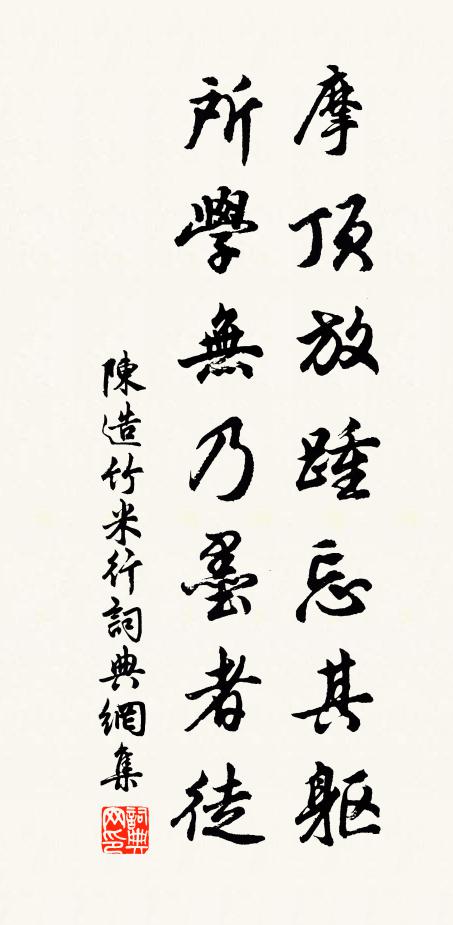 摩頂放踵忘其軀
所學無乃墨者徒
陳造竹米行詞典網集
詞典网印